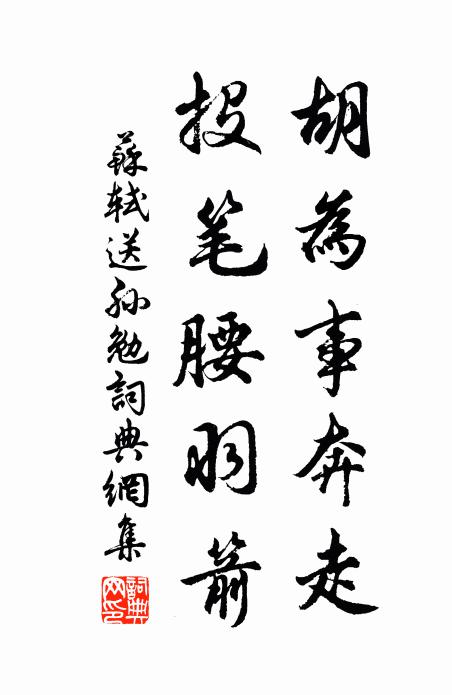 胡為事奔走
投笔腰羽箭
蘇軾送孙勉詞典網集
詞典網印